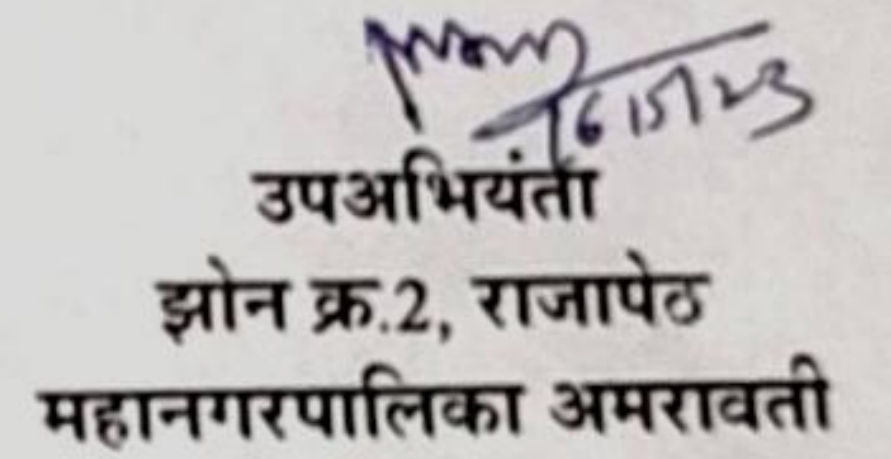 6/5/23
उपअभियंता
झोन क्र.2, राजापेठ
महानगरपालिका अमरावती